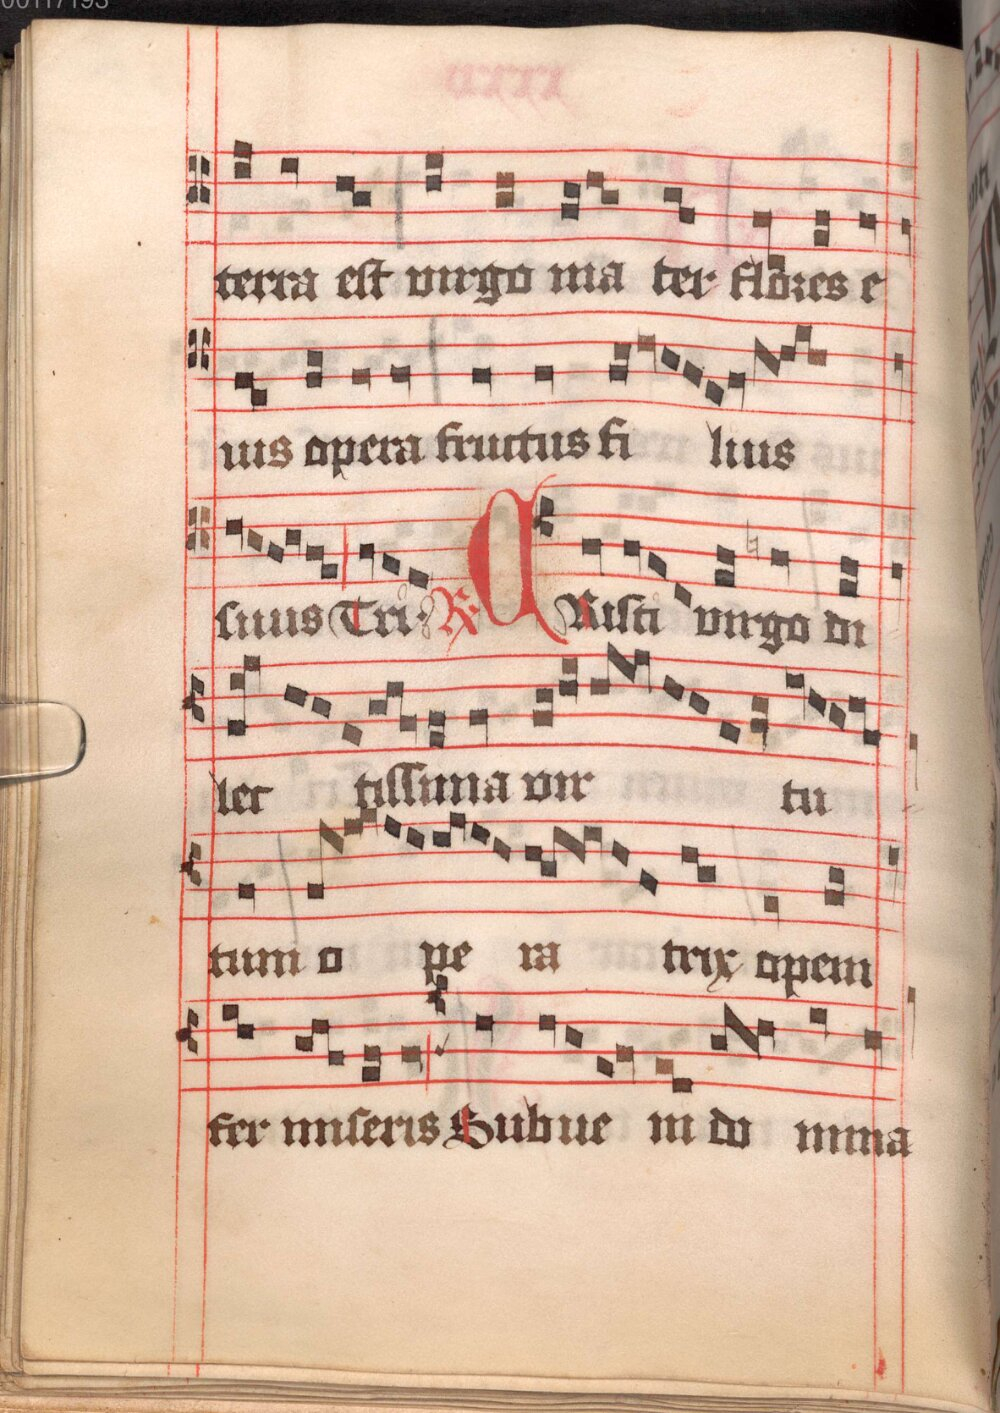 terra est virgo ma ter flores e
ius opera fructus fi lius
suus Tri. R. C Risti virgo di
lec tissima vir tu
tum o pe ra trix opem
fer miseris Subue ni do mina